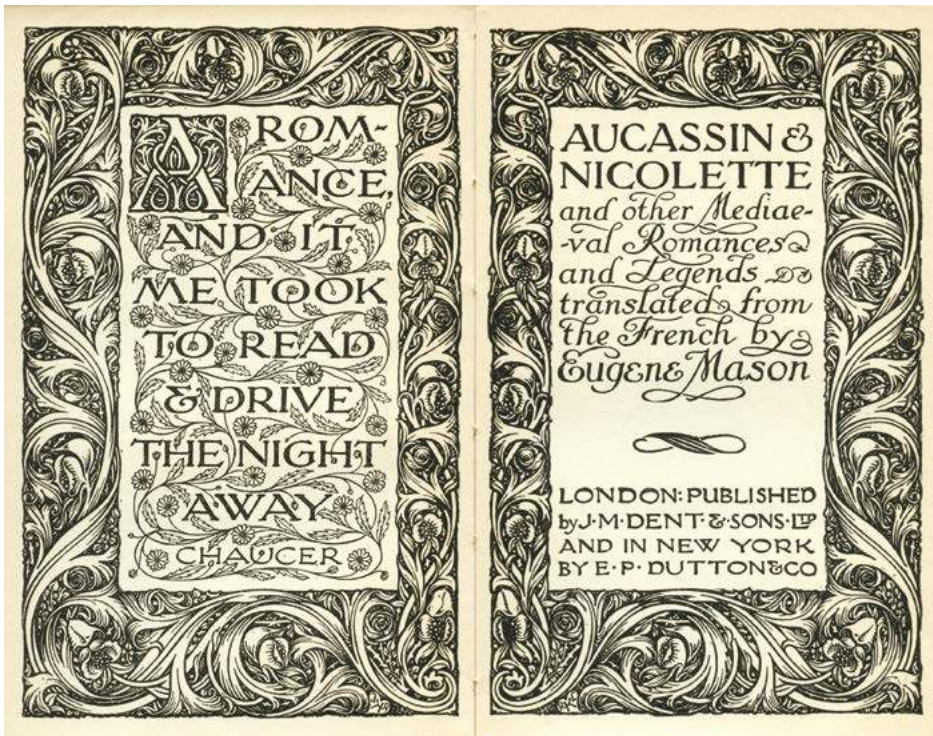 A ROM-
ANCE,
AND IT
ME TOOK
TO READ
& DRIVE
THE NIGHT
AWAY
CHAUCER
AUCASSIN &
NICOLETTE
and other Mediae-
-val Romances
and Legends
translated from
the French by
Eugene Mason
LONDON: PUBLISHED
by J·M·DENT·&·SONS·LTD
AND IN NEW YORK
BY E·P·DUTTON & CO